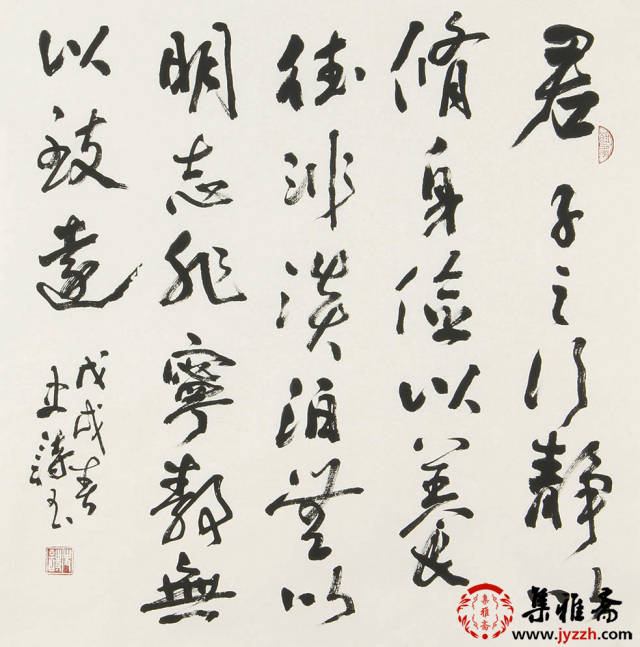 君子之行静以
脩身俭以養
德非淡泊無以
明志非寧静無
以致遠
戊戌春
集雅斋
www.jyzzh.com